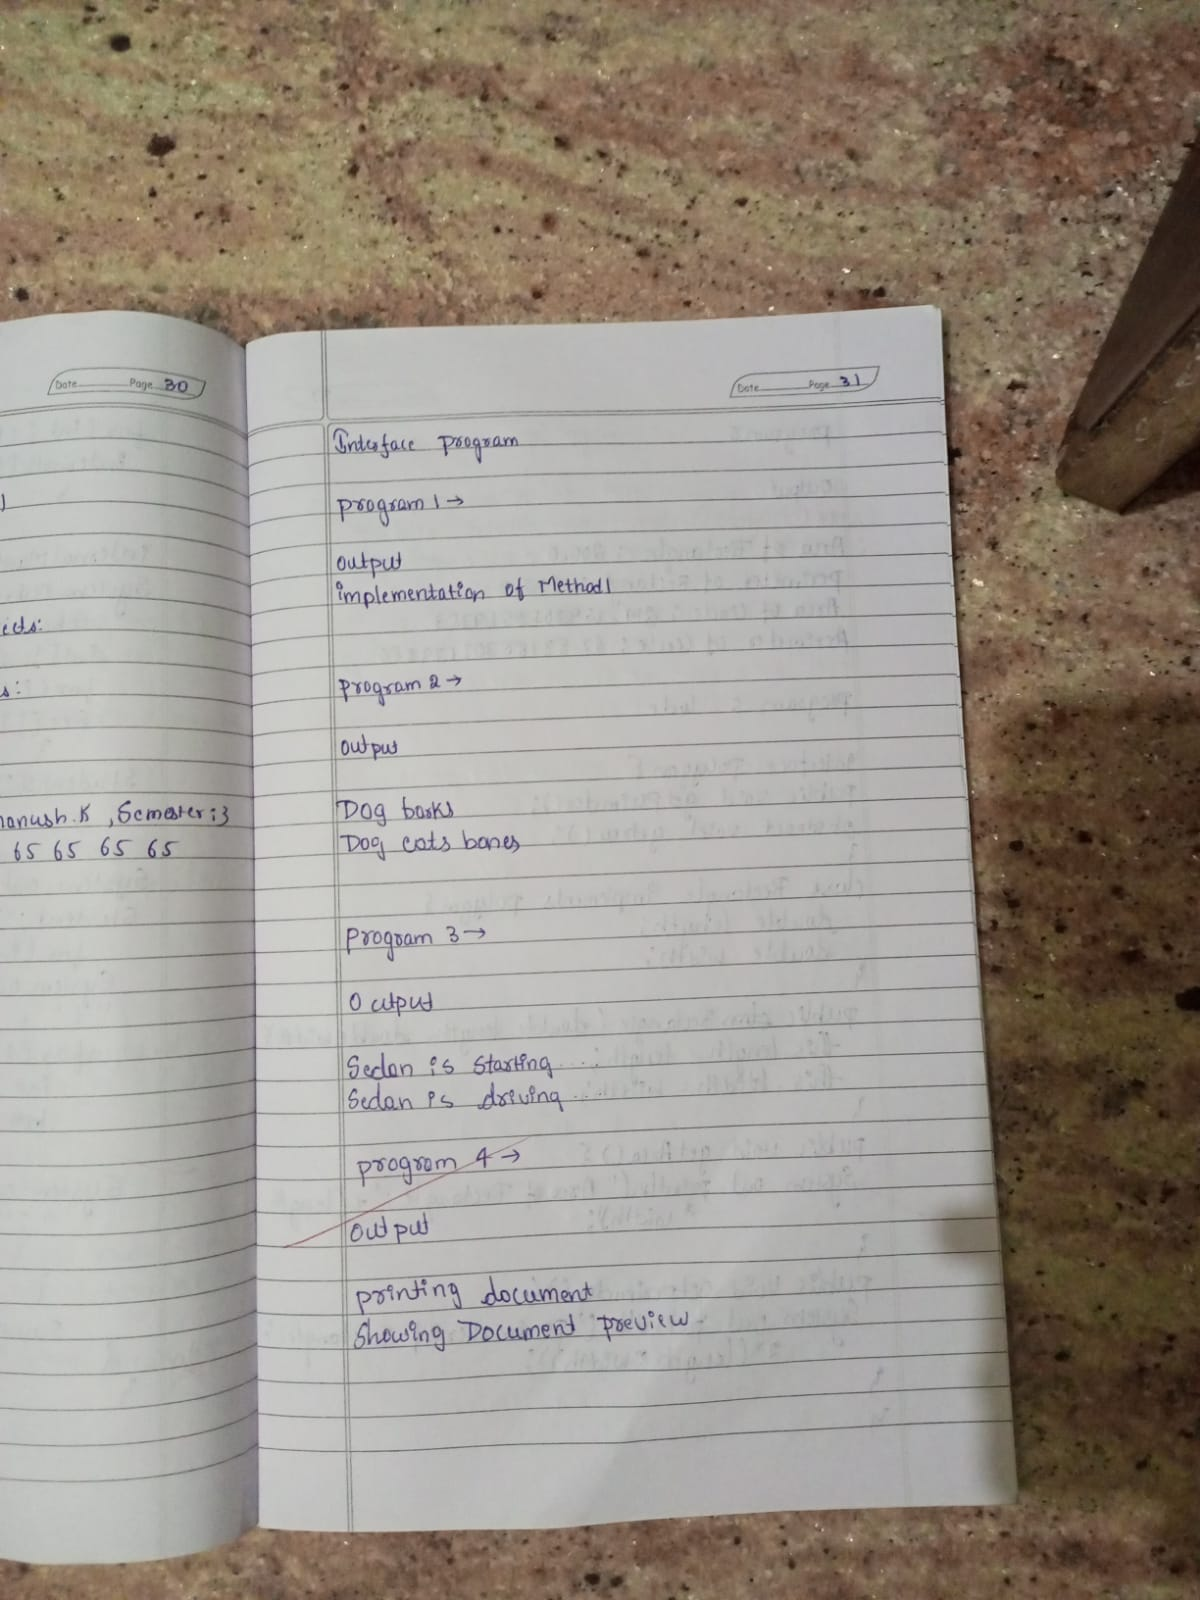 Date Page 30
ects:
s:
hanush.K , Semester:3
65 65 65 65
Date Page 31
Interface program
program 1 →
output
implementation of Method1
program 2 →
output
Dog barks
Dog eats bones
Program 3 →
Output
Sedan is starting....
Sedan is driving...
program 4 →
output
printing document
Showing Document preview